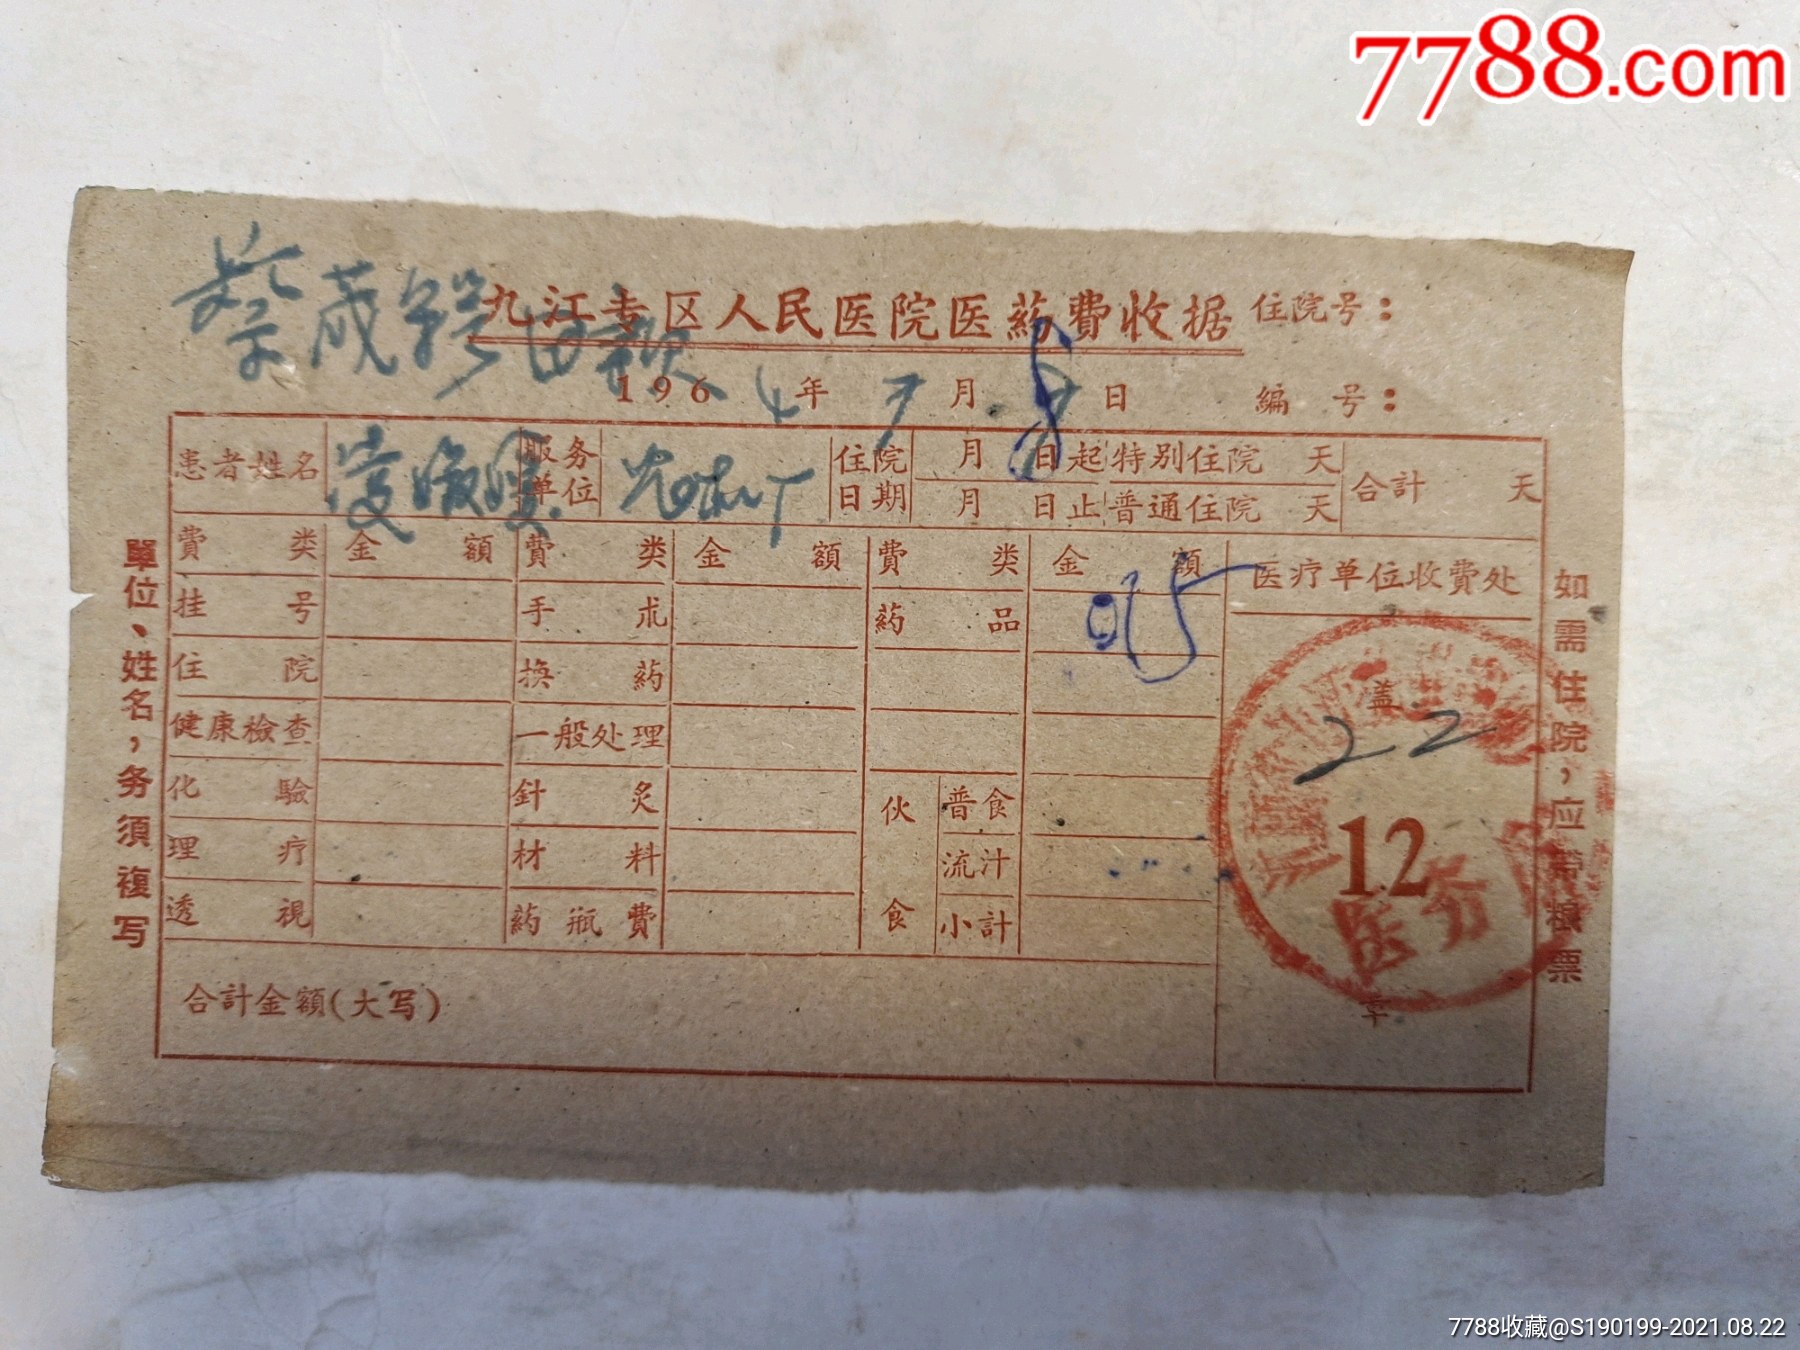 7788.com
九江专区人民医院医药費收据 住院号：
1964年7月8日 编号：
患者姓名 服务单位 住院日期 月 日起 特别住院 天 合計 天
月 日止 普通住院 天
費类 金額 費类 金額 費类 金額 医疗单位收費处
挂号 手朮 葯品 015
住院 换葯
健康檢查 一般处理
化驗 針炙 伙食 普食
理疗 材料 流汁
透視 葯瓶費 小計
合計金額(大写)
盖
22
12
医务
章
單位、姓名，务須複写
如需住院，应带粮票
7788收藏@S190199-2021.08.22